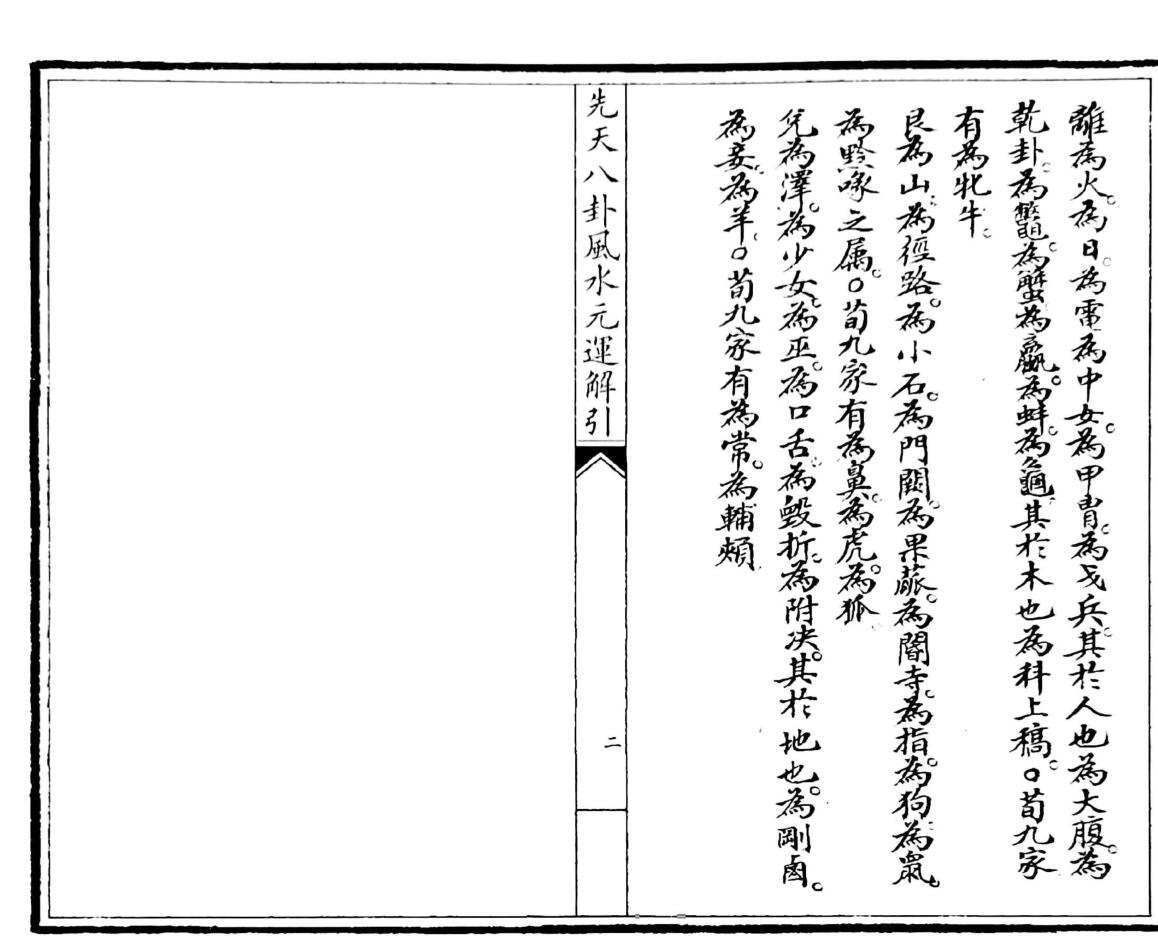 離為火。為日。為電為中女。為甲冑。為戈兵。其於人也為大腹。為
乾卦。為鼈。為蟹為蠃。為蚌。為龜其於木也為科上稿。○荀九家
有為牝牛。
艮為山。為徑路。為小石。為門闕。為果蓏。為閽寺。為指。為狗。為鼠。
為黔喙之属。○荀九家有為鼻。為虎。為狐。
兌為澤。為少女。為巫。為口舌。為毀折。為附决。其於地也。為剛鹵。
為妾。為羊。○荀九家有為常。為輔頰
先天八卦風水元運解引
二